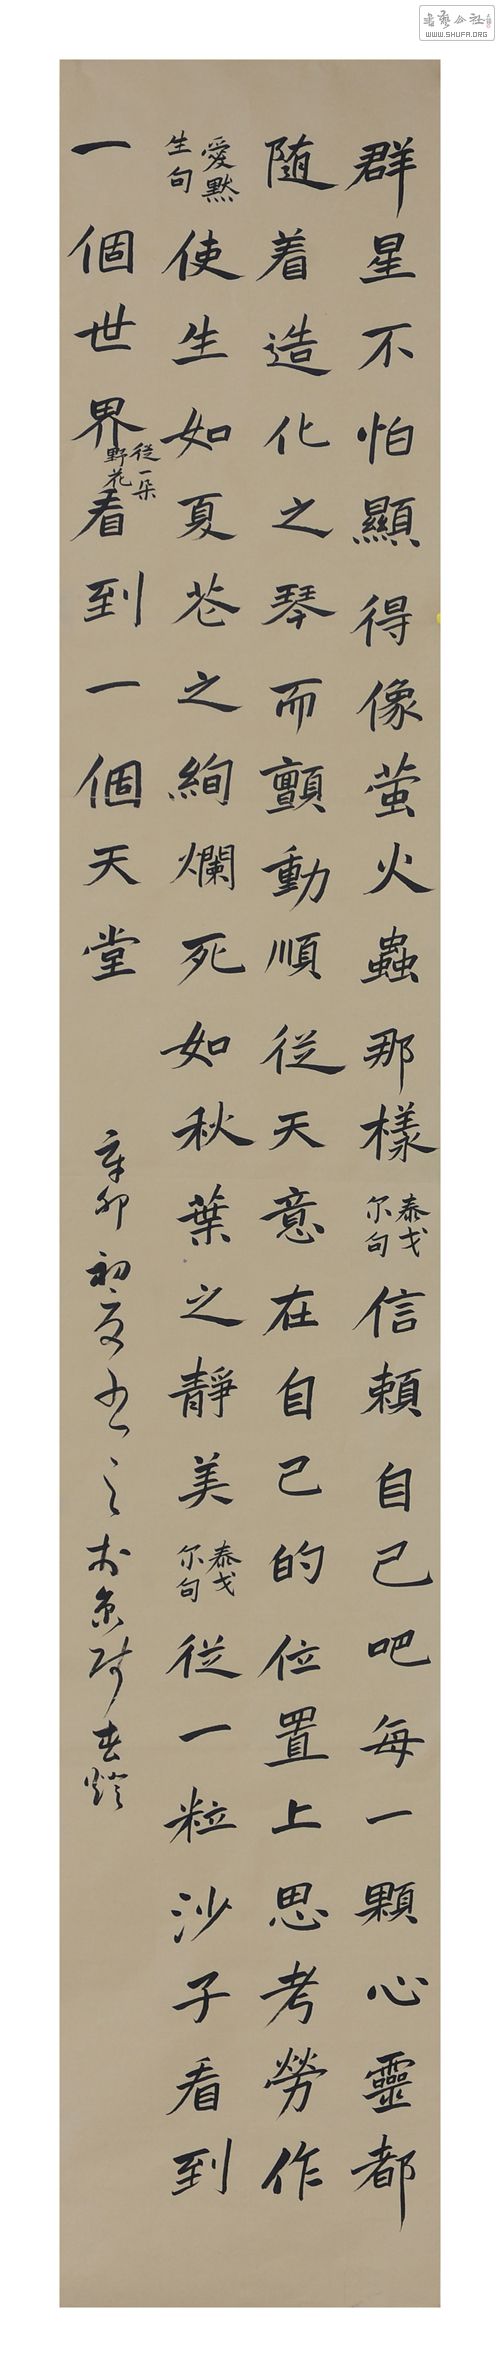 群星不怕顯得像萤火蟲那樣
泰戈
尔句
信賴自己吧每一顆心靈都
随着造化之琴而顫動順從天意在自己的位置上思考勞作
愛默
生句
使生如夏花之絢爛死如秋葉之靜美
泰戈
尔句
從一粒沙子看到
一個世界
從一朵
野花
看到一個天堂
辛卯初夏书之於京師
書藝公社
WWW.SHUFA.ORG